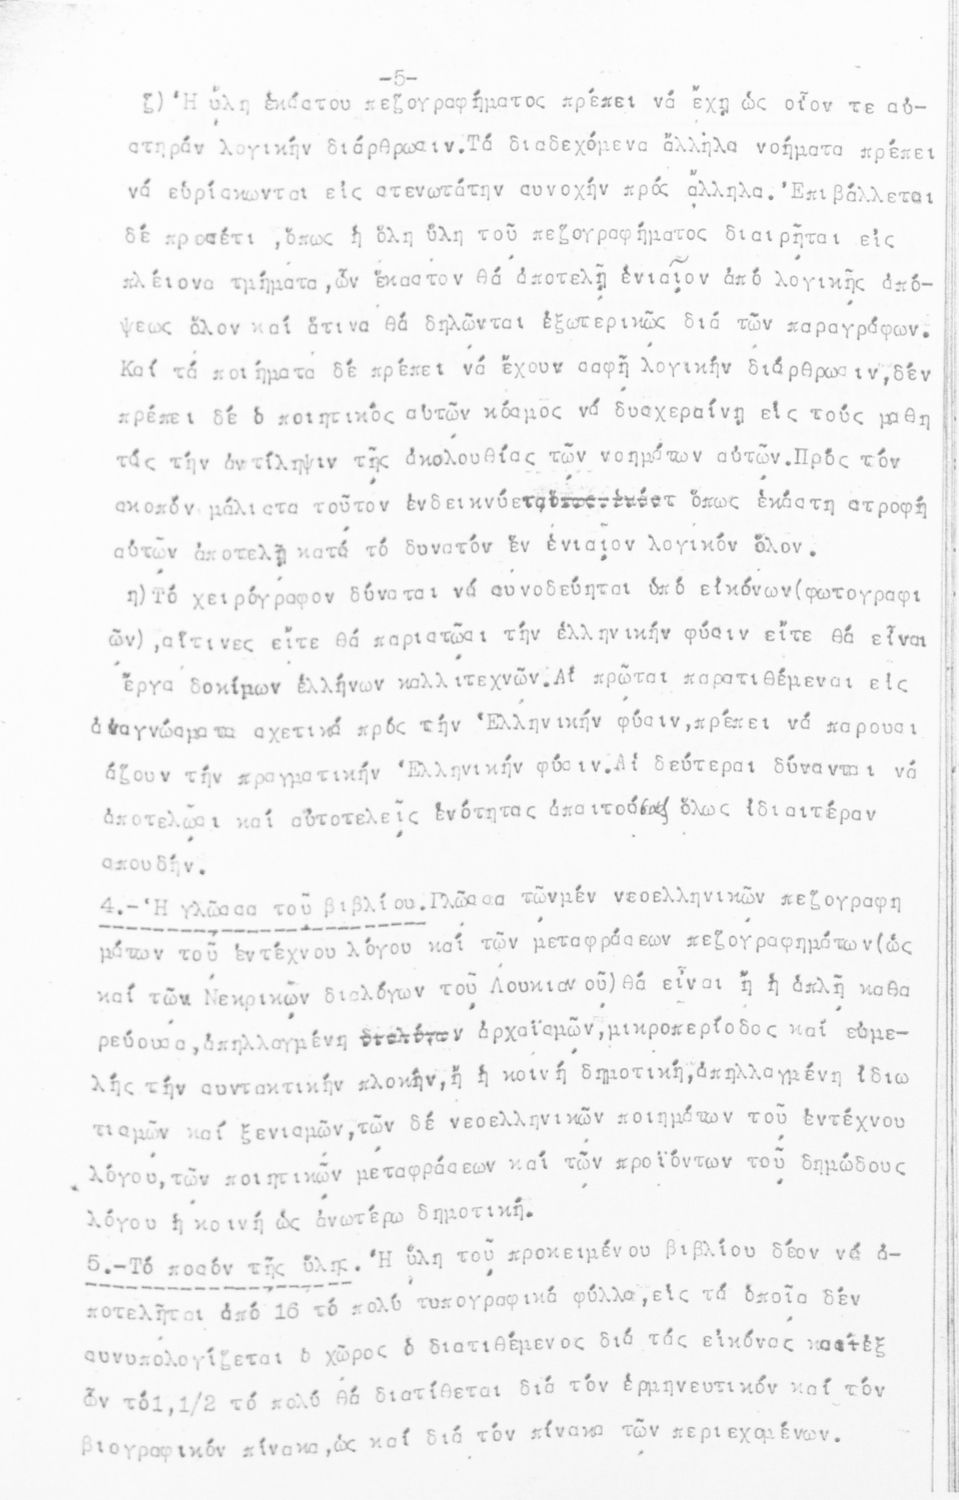 -5-
ζ) Ἡ ὕλη ἑκάστου πεζογραφήματος πρέπει νά ἔχῃ ὡς οἷον τε αὐ-
στηράν λογικήν διάρθρωσιν.Τά διαδεχόμενα ἄλληλα νοήματα πρέπει
νά εὑρίσκωνται εἰς στενωτάτην συνοχήν πρός ἄλληλα. Ἐπιβάλλεται
δέ προσέτι ,ὅπως ἡ ὅλη ὕλη τοῦ πεζογραφήματος διαιρῆται εἰς
πλείονα τμήματα,ὧν ἕκαστον θά ἀποτελῇ ἑνιαῖον ἀπό λογικῆς ἀπό-
ψεως ὅλον καί ἅτινα θά δηλῶνται ἐξωτερικῶς διά τῶν παραγράφων.
Καί τά ποιήματα δέ πρέπει νά ἔχουν σαφῆ λογικήν διάρθρωσιν,δέν
πρέπει δέ ὁ ποιητικός αὐτῶν κόσμος νά δυσχεραίνῃ εἰς τούς μαθη
τάς τήν ἀντίληψιν τῆς ἀκολουθίας τῶν νοημάτων αὐτῶν.Πρός τόν
σκοπόν μάλιστα τοῦτον ἐνδεικνύεται ὅπως ἑκάστη στροφή
αὐτῶν ἀποτελῇ κατά τό δυνατόν ἕν ἑνιαῖον λογικόν ὅλον.
η)Τό χειρόγραφον δύναται νά συνοδεύηται ὑπό εἰκόνων(φωτογραφι
ῶν),αἵτινες εἴτε θά παριστῶσι τήν ἑλληνικήν φύσιν εἴτε θά εἶναι
ἔργα δοκίμων ἑλλήνων καλλιτεχνῶν.Αἱ πρῶται παρατιθέμεναι εἰς
ἀναγνώσματα σχετικά πρός τήν Ἑλληνικήν φύσιν,πρέπει νά παρουσι
άζουν τήν πραγματικήν Ἑλληνικήν φύσιν.Αἱ δεύτεραι δύνανται νά
ἀποτελῶσι καί αὐτοτελεῖς ἑνότητας ἀπαιτούσας ὅλως ἰδιαιτέραν
σπουδήν.
4.-Ἡ γλῶσσα τοῦ βιβλίου.Γλῶσσα τῶνμέν νεοελληνικῶν πεζογραφη
μάτων τοῦ ἐντέχνου λόγου καί τῶν μεταφράσεων πεζογραφημάτων(ὡς
καί τῶν Νεκρικῶν διαλόγων τοῦ Λουκιανοῦ)θά εἶναι ἤ ἡ ἁπλῆ καθα
ρεύουσα,ἀπηλλαγμένη ἀρχαϊσμῶν,μικροπερίοδος καί εὐμε-
λής τήν συντακτικήν πλοκήν,ἤ ἡ κοινή δημοτική,ἀπηλλαγμένη ἰδιω
τισμῶν καί ξενισμῶν,τῶν δέ νεοελληνικῶν ποιημάτων τοῦ ἐντέχνου
λόγου,τῶν ποιητικῶν μεταφράσεων καί τῶν προϊόντων τοῦ δημώδους
λόγου ἡ κοινή ὡς ἀνωτέρω δημοτική.
5.-Τό ποσόν τῆς ὕλης.Ἡ ὕλη τοῦ προκειμένου βιβλίου δέον νά ἀ-
ποτελῆται ἀπό 16 τό πολύ τυπογραφικά φύλλα,εἰς τά ὁποῖα δέν
συνυπολογίζεται ὁ χῶρος ὁ διατιθέμενος διά τάς εἰκόνας καί ἐξ
ὧν τό1,1/2 τό πολύ θά διατίθεται διά τόν ἑρμηνευτικόν καί τόν
βιογραφικόν πίνακα,ὡς καί διά τόν πίνακα τῶν περιεχομένων.